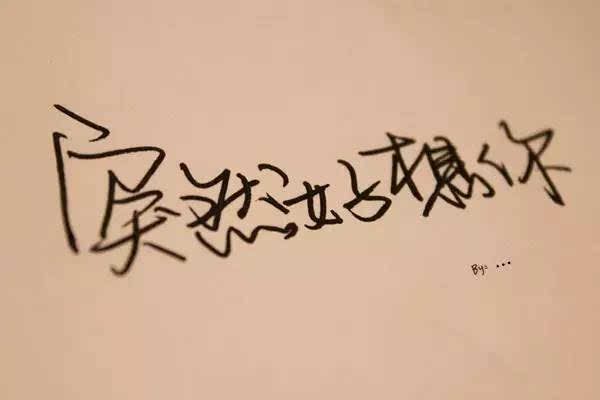 突然好想你
By: ...